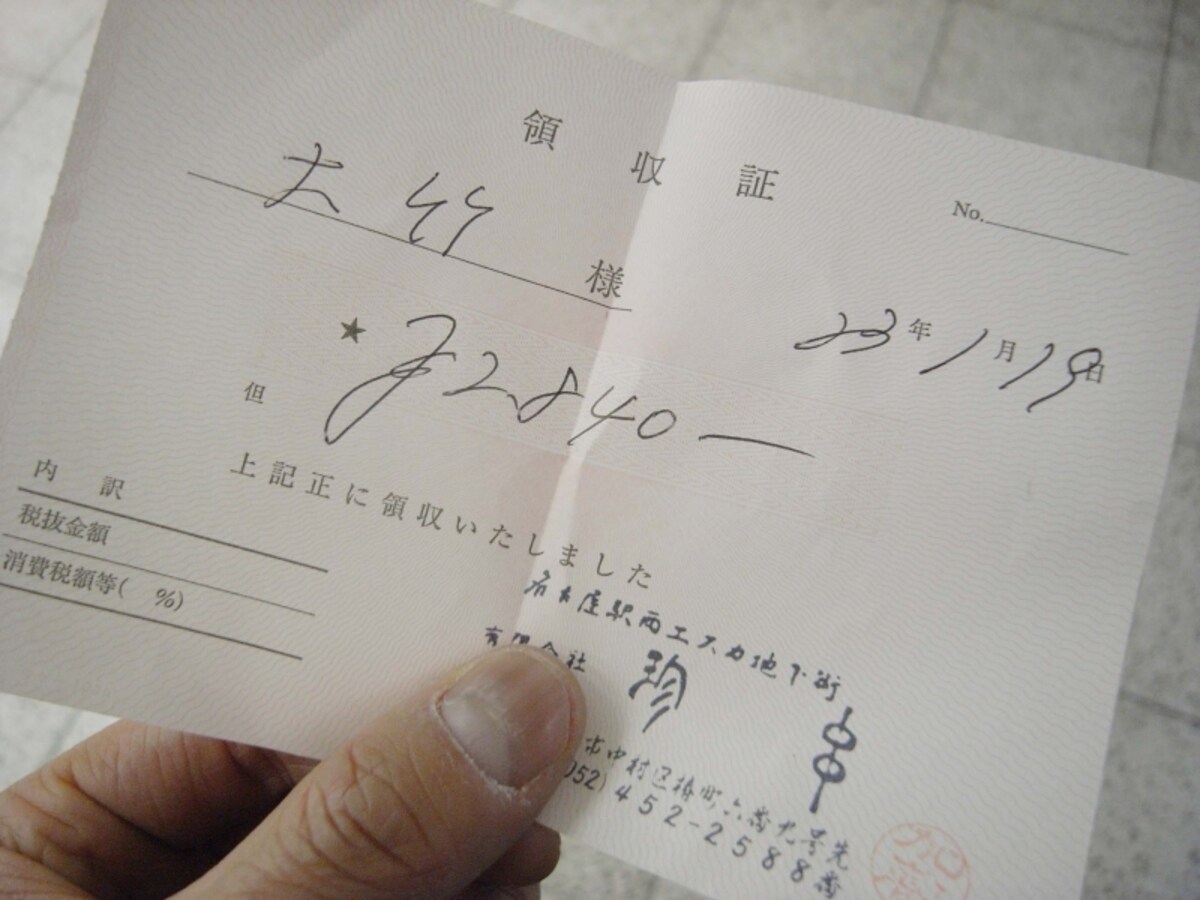 領収証
No.
大竹 様
23年1月19日
★ ¥2,840-
但
上記正に領収いたしました
内訳
税抜金額
消費税額等( %)
名古屋駅西エスカ地下街
有限会社 珍串
市中村区椿町六番九号先
052)452-2588番